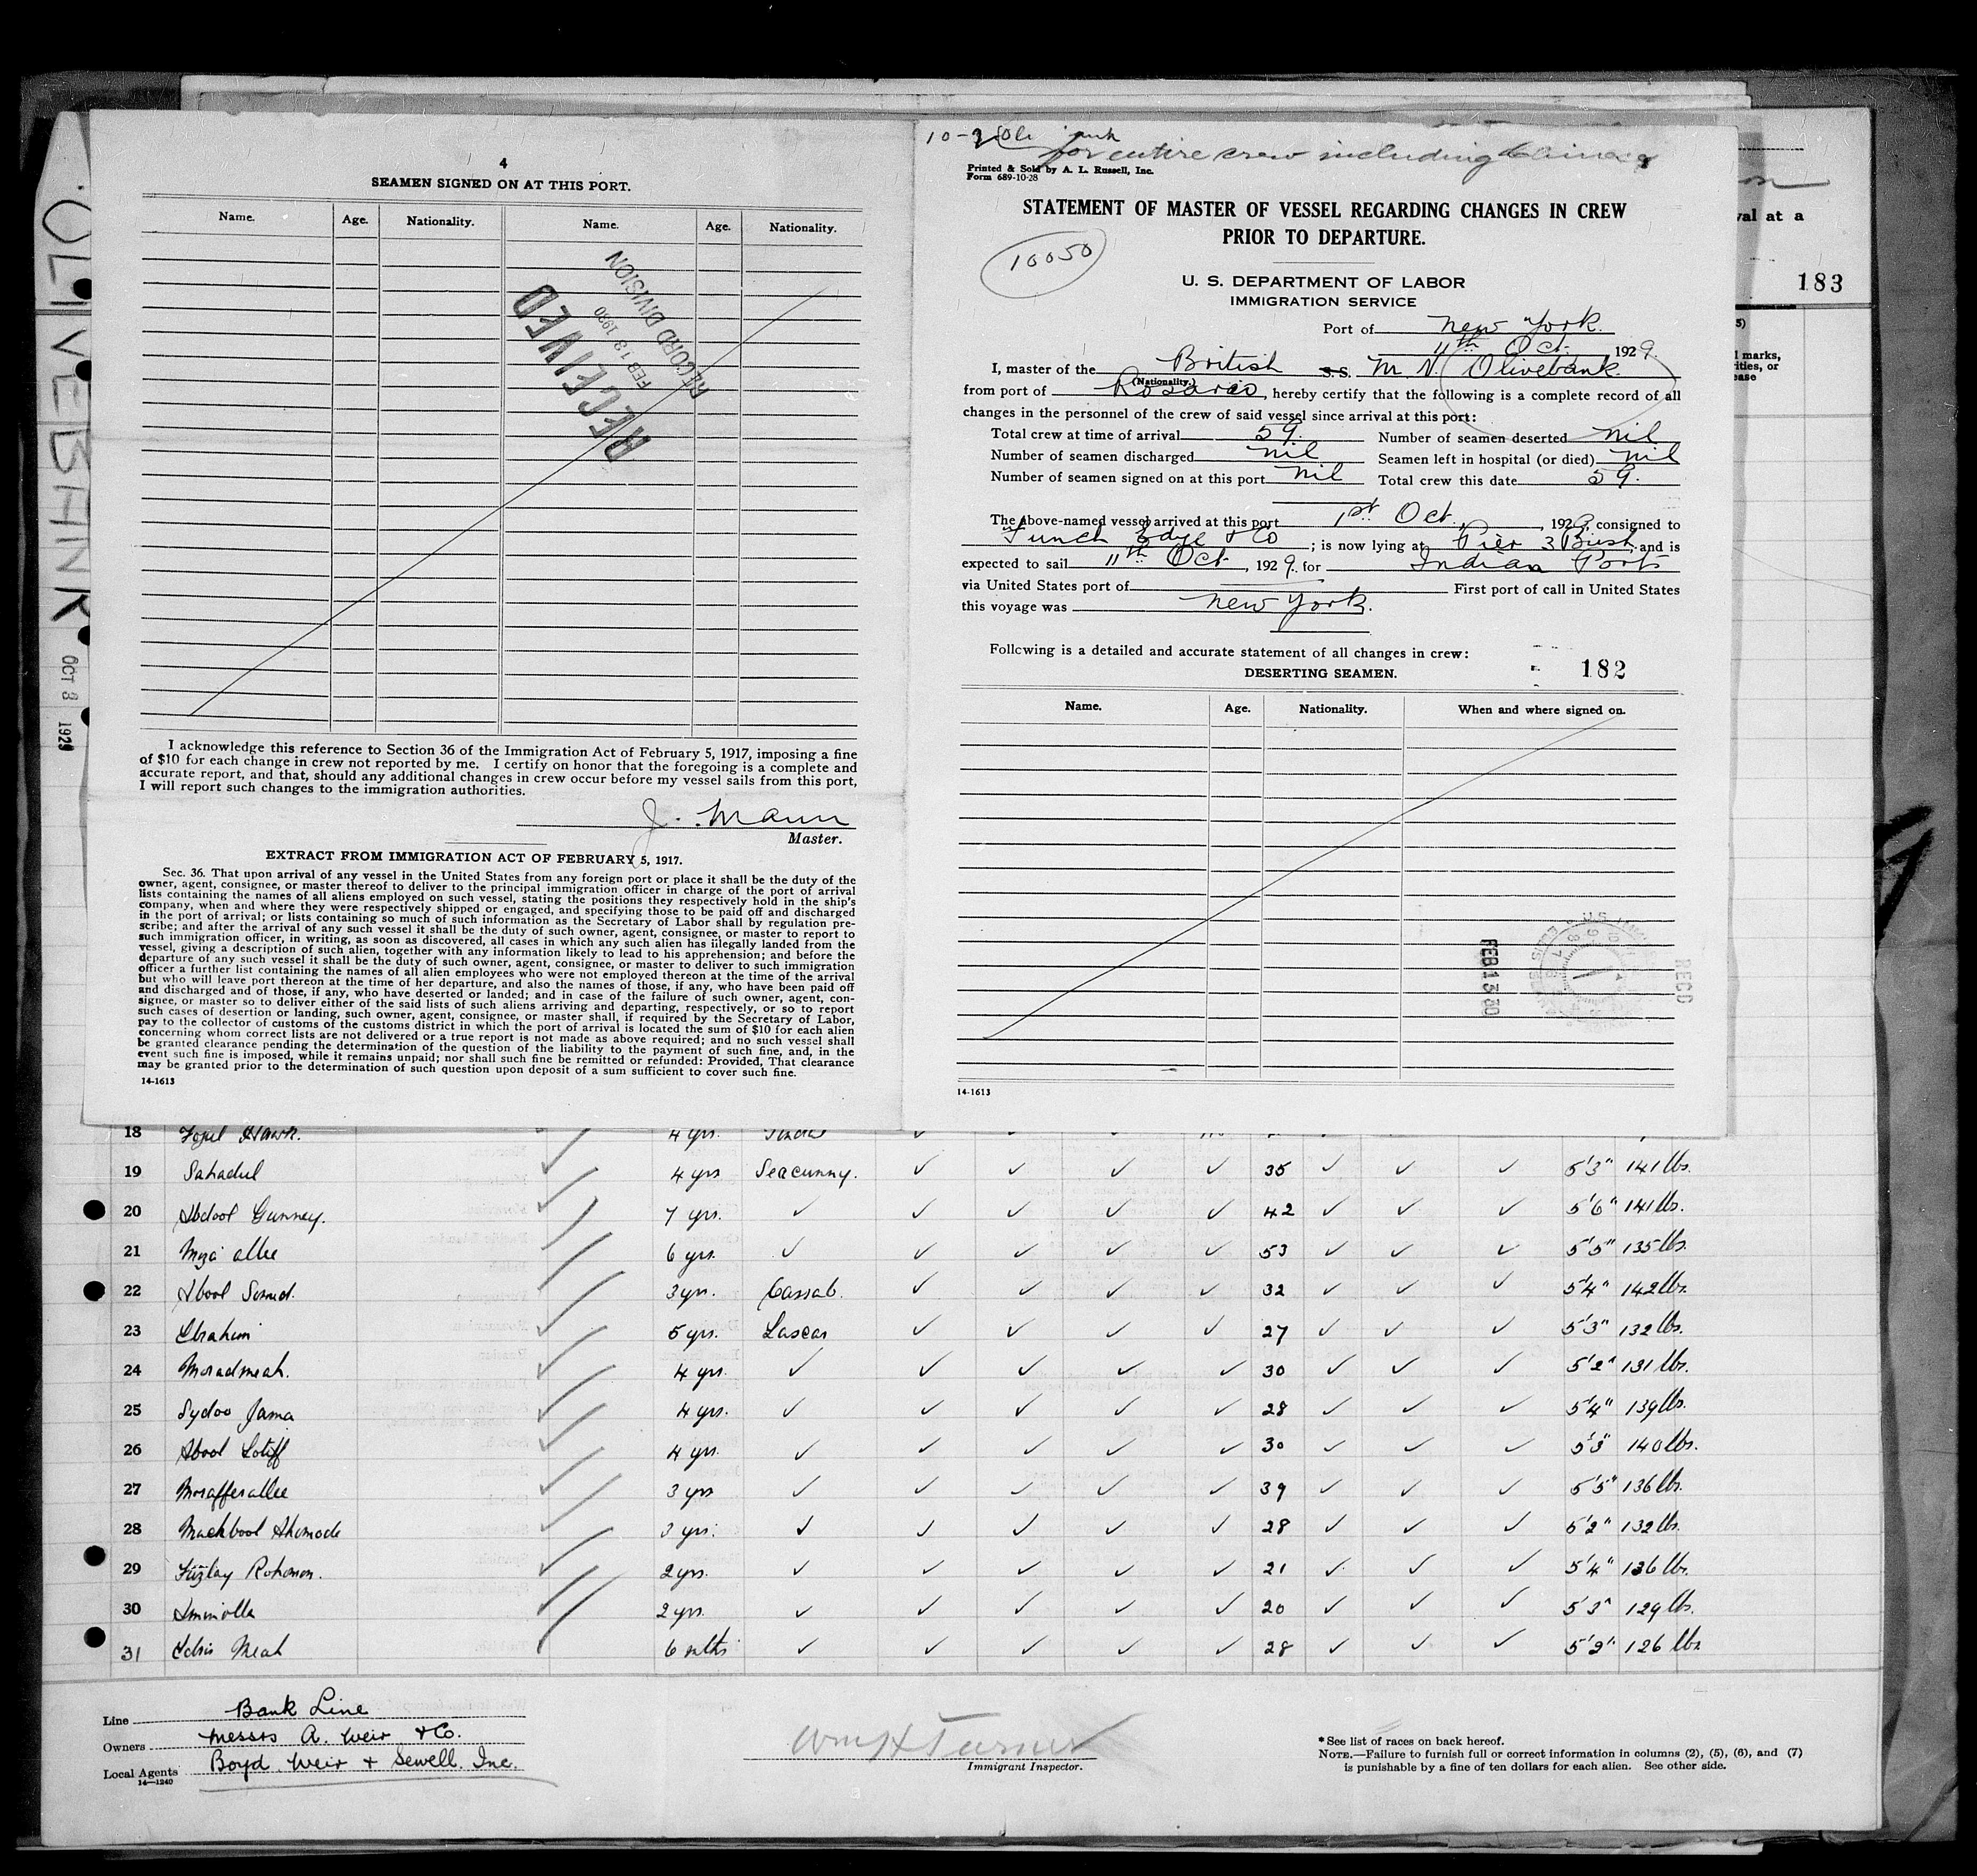 4
SEAMEN SIGNED ON AT THIS PORT.
Name. Age. Nationality. Name. Age. Nationality.
RECEIVED
FEB 13 1930
RECORD DIVISION
I acknowledge this reference to Section 36 of the Immigration Act of February 5, 1917, imposing a fine
of $10 for each change in crew not reported by me. I certify on honor that the foregoing is a complete and
accurate report, and that, should any additional changes in crew occur before my vessel sails from this port,
I will report such changes to the immigration authorities.
J. Mann
Master.
EXTRACT FROM IMMIGRATION ACT OF FEBRUARY 5, 1917.
Sec. 36. That upon arrival of any vessel in the United States from any foreign port or place it shall be the duty of the
owner, agent, consignee, or master thereof to deliver to the principal immigration officer in charge of the port of arrival
lists containing the names of all aliens employed on such vessel, stating the positions they respectively hold in the ship's
company, when and where they were respectively shipped or engaged, and specifying those to be paid off and discharged
in the port of arrival; or lists containing so much of such information as the Secretary of Labor shall by regulation pre-
scribe; and after the arrival of any such vessel it shall be the duty of such owner, agent, consignee, or master to report to
such immigration officer, in writing, as soon as discovered, all cases in which any such alien has illegally landed from the
vessel, giving a description of such alien, together with any information likely to lead to his apprehension; and before the
departure of any such vessel it shall be the duty of such owner, agent, consignee, or master to deliver to such immigration
officer a further list containing the names of all alien employees who were not employed thereon at the time of the arrival
but who will leave port thereon at the time of her departure, and also the names of those, if any, who have been paid off
and discharged and of those, if any, who have deserted or landed; and in case of the failure of such owner, agent, con-
signee, or master so to deliver either of the said lists of such aliens arriving and departing, respectively, or so to report
such cases of desertion or landing, such owner, agent, consignee, or master shall, if required by the Secretary of Labor,
pay to the collector of customs of the customs district in which the port of arrival is located the sum of $10 for each alien
concerning whom correct lists are not delivered or a true report is not made as above required; and no such vessel shall
be granted clearance pending the determination of the question of the liability to the payment of such fine, and, in the
event such fine is imposed, while it remains unpaid; nor shall such fine be remitted or refunded: Provided, That clearance
may be granted prior to the determination of such question upon deposit of a sum sufficient to cover such fine.
14-1613
for entire crew including
Printed & Sold by A. L. Russell, Inc.
Form 689-10-28
STATEMENT OF MASTER OF VESSEL REGARDING CHANGES IN CREW
PRIOR TO DEPARTURE.
10050
U. S. DEPARTMENT OF LABOR
IMMIGRATION SERVICE
Port of New York.
11th Oct. 1929.
I, master of the British S.S. M.V. Olivebank
(Nationality.)
from port of Rosario, hereby certify that the following is a complete record of all
changes in the personnel of the crew of said vessel since arrival at this port:
Total crew at time of arrival 59. Number of seamen deserted nil
Number of seamen discharged nil Seamen left in hospital (or died) nil
Number of seamen signed on at this port nil Total crew this date 59.
The above-named vessel arrived at this port 1st Oct., 1929, consigned to
Funch Edye & Co; is now lying at Pier 3 Bush, and is
expected to sail 11th Oct, 1929. for Indian Ports
via United States port of First port of call in United States
this voyage was New York.
Following is a detailed and accurate statement of all changes in crew:
182
DESERTING SEAMEN.
Name. Age. Nationality. When and where signed on.
FEB 13 30
RECD
14-1613
val at a
183
5)
marks,
ities, or
ease
OLIVEBANK
OCT 8 1929
18 4 yrs.
19 Sahadul 4 yrs Seacunny. 35 5'3" 141 lbs.
20 Abdool Gunney. 7 yrs. 42 5'6" 141 lbs.
21 allee 6 yrs. 53 5'5" 135 lbs.
22 Abool Somed. 3 yrs. Cassab. 32 5'4" 142 lbs.
23 Ebrahim 5 yrs. Lascar 27 5'3" 132 lbs.
24 Moradmeah. 4 yrs. 30 5'2" 131 lbs.
25 Sydoo Jama 4 yrs. 28 5'4" 139 lbs.
26 Abool Lotiff 4 yrs. 30 5'3" 140 lbs.
27 Mosafferallee 3 yrs 39 5'5" 136 lbs.
28 Mackbool Ahomode 3 yrs. 28 5'2" 132 lbs.
29 Fuzlay Rohomon. 2 yrs. 21 5'4" 136 lbs.
30 Aminolla 2 yrs. 20 5'3" 129 lbs.
31 Edris Meah 6 mths 28 5'2" 126 lbs
Line Bank Line
Owners Messrs A. Weir & Co.
Local Agents Boyd Weir & Sewell Inc.
14—1240
Wm H Turner
Immigrant Inspector.
*See list of races on back hereof.
NOTE.—Failure to furnish full or correct information in columns (2), (5), (6), and (7)
is punishable by a fine of ten dollars for each alien. See other side.